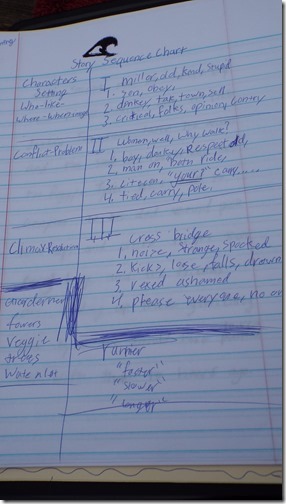 Story Sequence Chart
Characters
Setting
Who-like
Where-When
I miller, old, kind, stupid
1. son, obey,
2. donkey, fair, town, sell
3. critised, folks, opinion, contry
Conflict-Problem
II woman, well, why walk?
1. boy, donkey, Respect old,
2. man on, both ride,
3. citezen, "your!" cary....
4. tied, carry, pole.
Climax Resolution
III cross bridge
1. noize, strange, spooked
2. Kicks, lose, falls, drowned
3. vexed ashamed
4. please every one, no one
fowers
veggie
trees
runner
"faster"
"slower"
"longer"